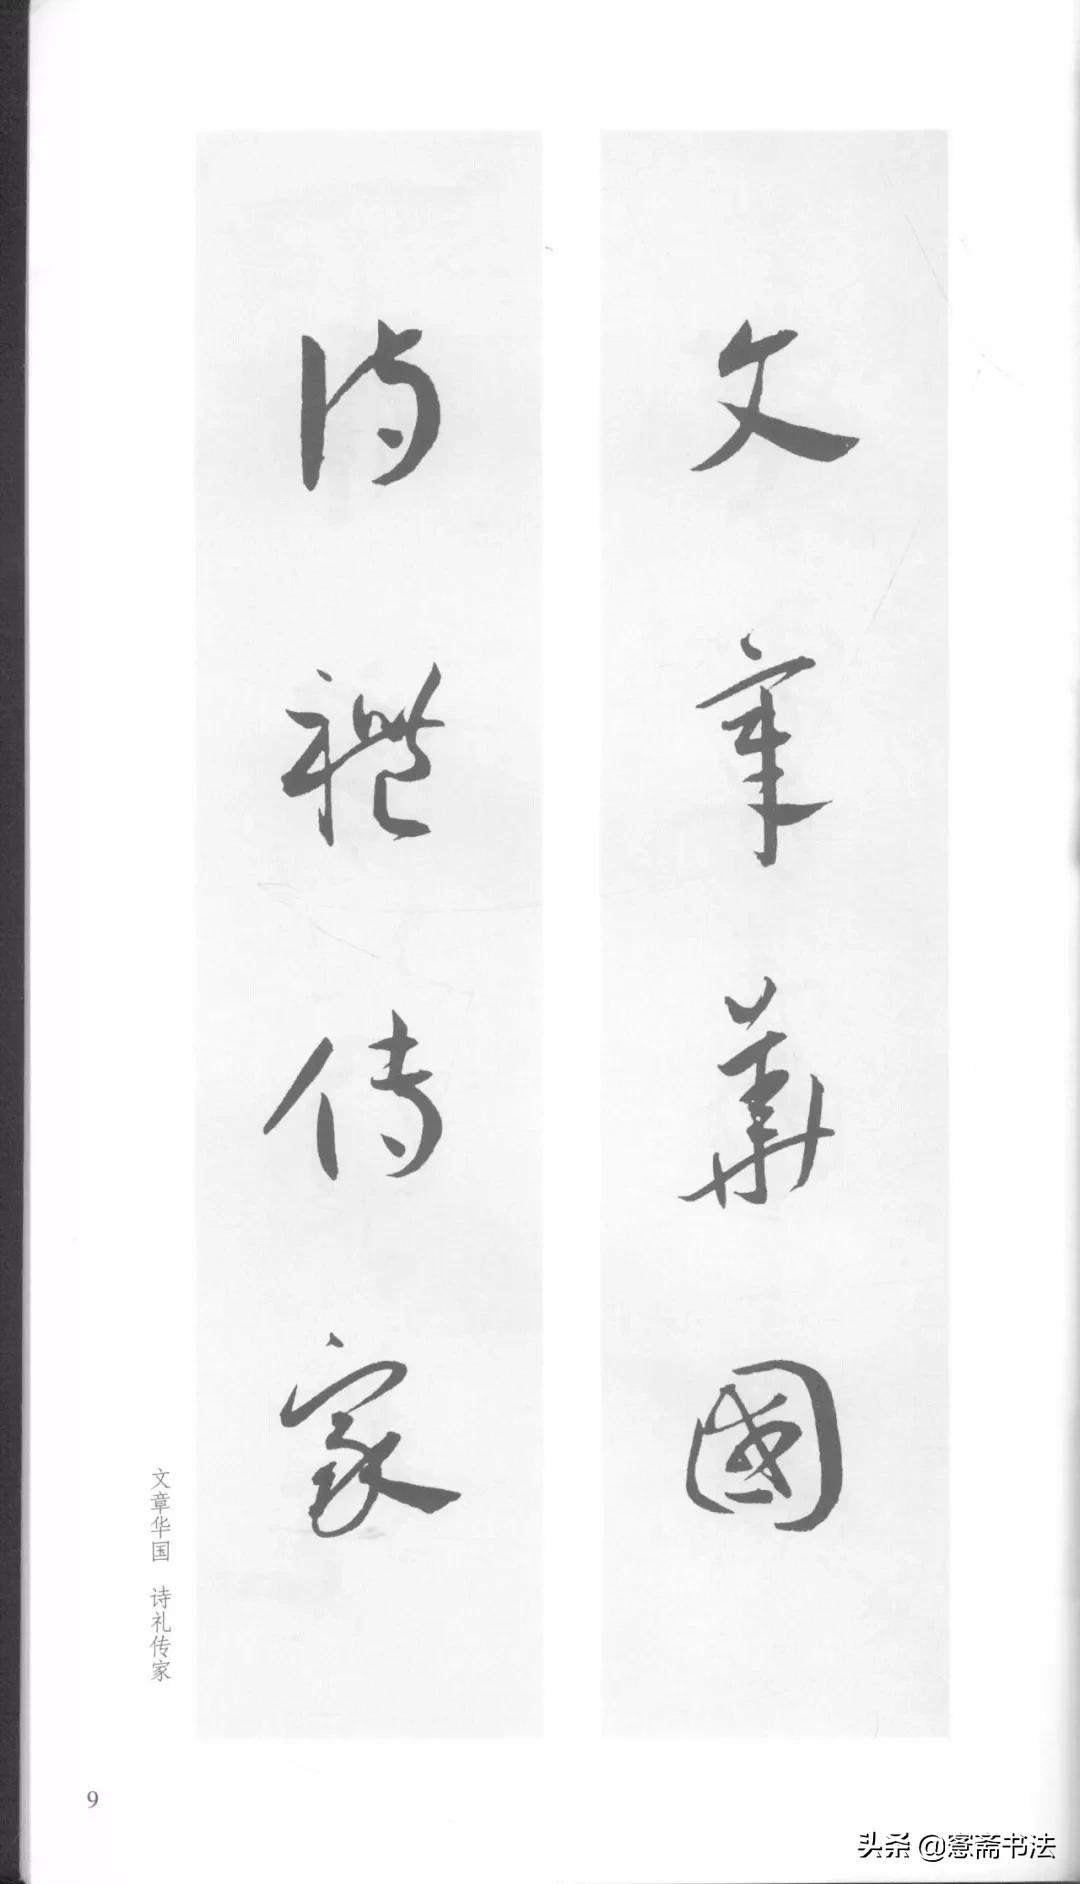 文章華國
詩禮傳家
文章华国 诗礼传家
9
头条 @窓斋书法